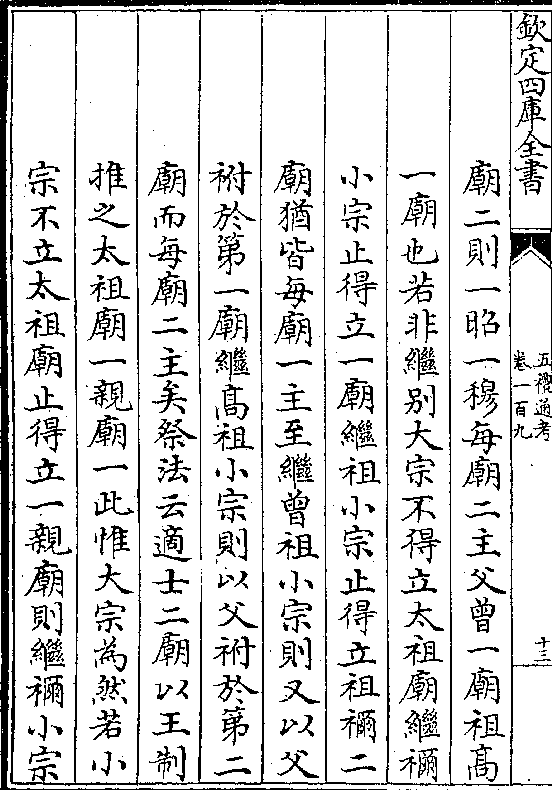 欽定四庫全書
五禮通考
卷一百九
十三
廟二則一昭一穆每廟二主父曾一廟祖高
一廟也若非繼別大宗不得立太祖廟繼禰
小宗止得立一廟繼祖小宗止得立祖禰二
廟猶皆每廟一主至繼曾祖小宗則又以父
祔於第一廟繼高祖小宗則以父祔於第二
廟而每廟二主矣祭法云適士二廟以王制
推之太祖廟一親廟一此惟大宗為然若小
宗不立太祖廟止得立一親廟則繼禰小宗